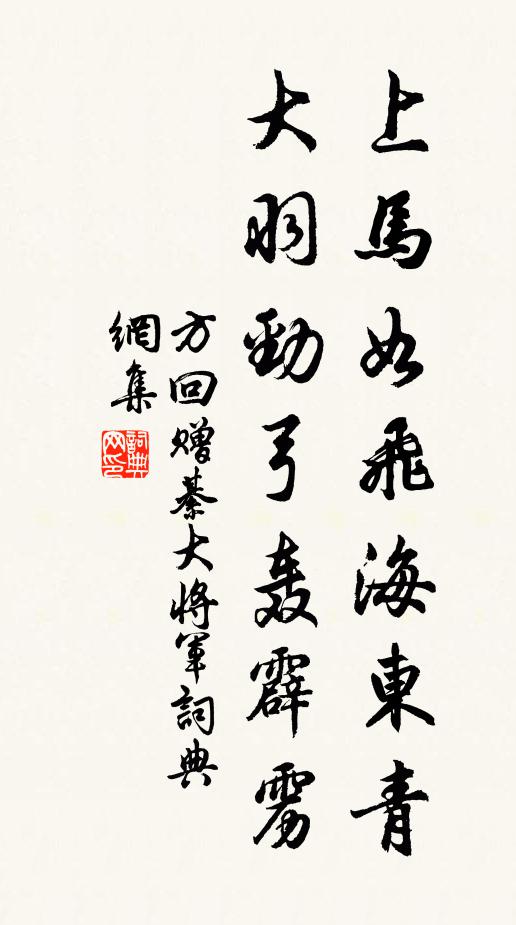 上馬如飛海東青
大羽勁弓轰霹雳
方回赠綦大将軍詞典
網集
詞典
网印